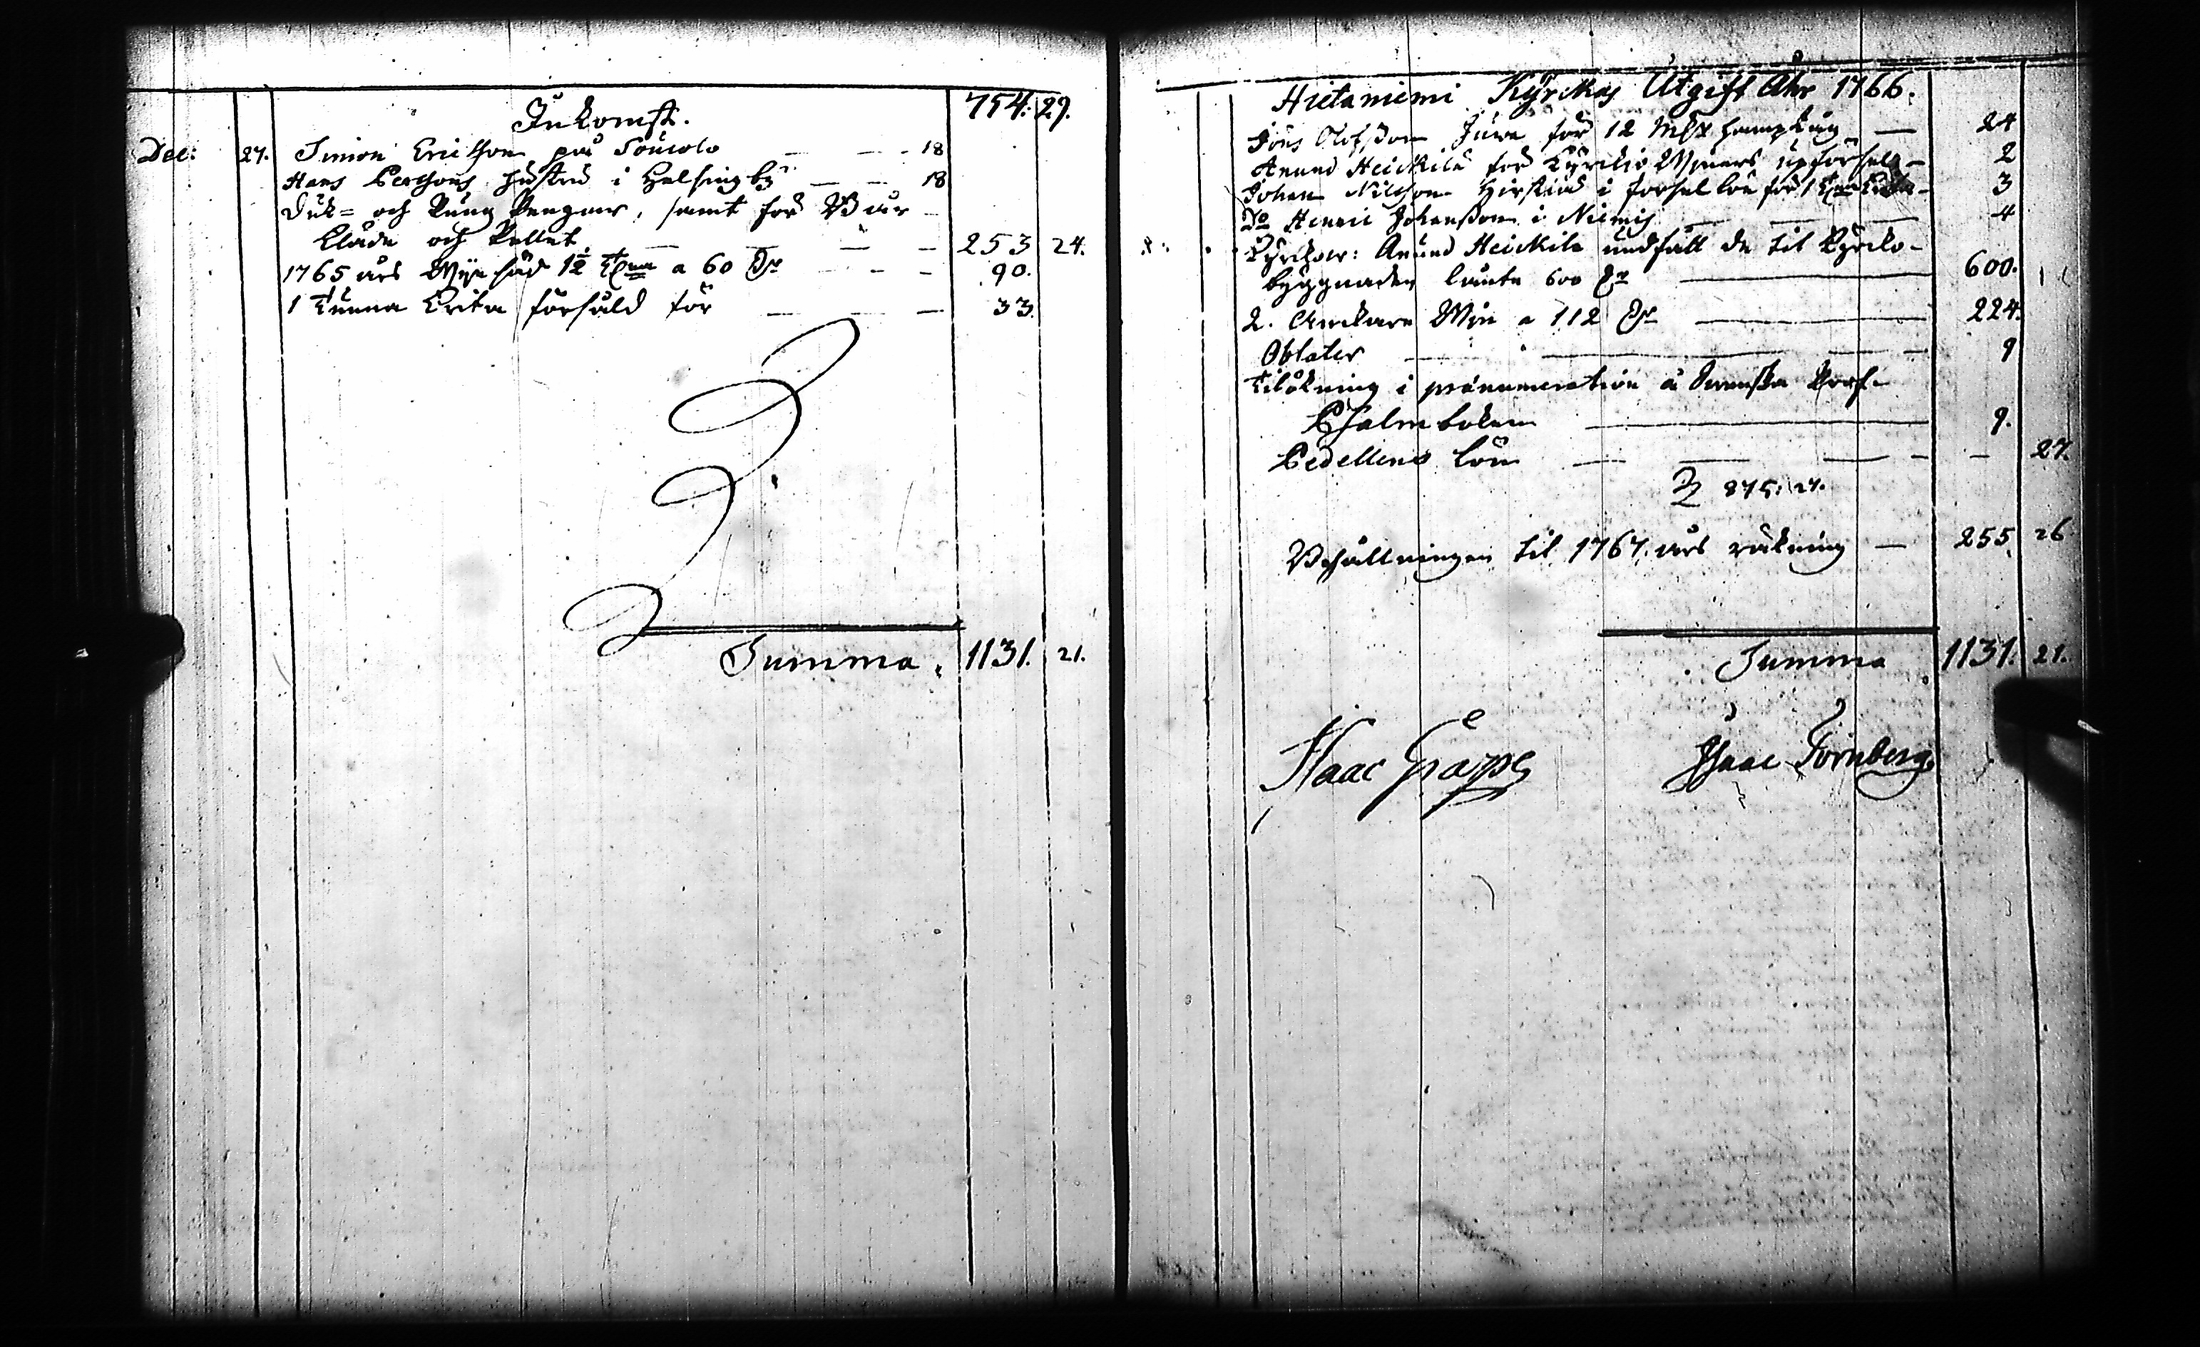 Inkomst. 754. 29.
Dec: 27. Simon Ericsson på Souwolo — — 18
Hans Perssons hustru i Helsingby — — 18
Duk= och Pung Pengar, samt för Bår
kläde och Pellet — — — 253 24.
1765 års Wijnsäd 1½ Tna a 60 Dr — — 90.
1 Tunna Krita försåld för — — — 33.
Summa. 1131. 21.
Hietaniemi Kyrckas Utgift Åhr 1766.
Jöns Olofsson Juva för 12 — 24
Anund Heickilä för Kyrkio Wijnets upförsell — 2
Johan Nilsson i forsellön för 1 Tna — 3
Do Henric Johansson i Niemis — 4
Kyrckow: Anund Heickilä undfått de til Kyrko-
byggnaden lånte 600 Dr — 600.
2. Anckare Wijn a 112 Dr — 224.
Oblater — 9
Tilökning i prænumeration å Swenska
Psalmboken — 9.
Pedellens lön — — — 27.
875: 27.
Behållningen til 1767. års räkning — 255. 26
Summa 1131. 21.
Isaac Grape Isaac Fornberg